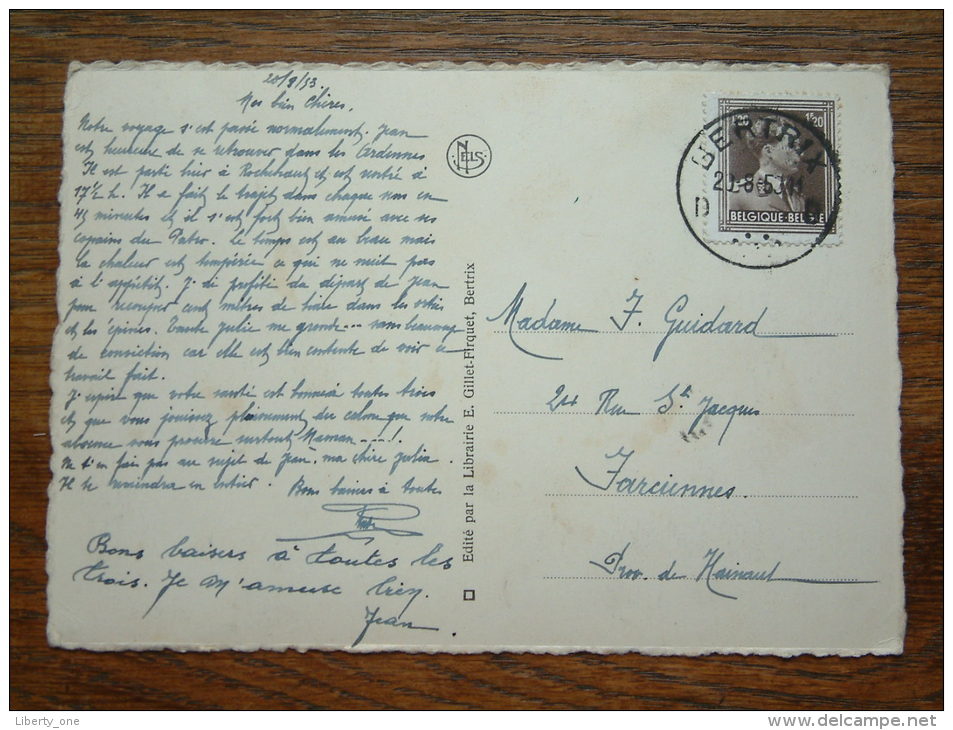 20/8/53
Mes bien Chères,
Notre voyage s'est passé normalement. Jean
est heureux de se retrouver dans les Ardennes
Il est parti hier à Rochehaut et est rentré à
17 1/2 h. Il a fait le trajet dans chaque sens en
45 minutes et il s'est fort bien amusé avec ses
copains du Patro. Le temps est au beau mais
la chaleur est tempérée ce qui ne nuit pas
à l'appétit. J'ai profité du départ de Jean
pour recouper cent mètres de haie dans les orties
et les épines. Tante Julie me gronde --- sans beaucoup
de conviction car elle est bien contente de voir ce
travail fait.
J'espère que votre santé est bonne à toutes trois
et que vous jouissez pleinement du calme que notre
absence vous procure surtout Maman ---!
Ne t'en fais pas au sujet de Jean, ma chère Julia.
Il te reviendra en entier. Bons baisers à toutes
Bons baisers à toutes les
trois. Je m'amuse bien.
Jean
NELS
Edité par la Librairie E. Gillet-Firquet, Bertrix
1F20 1F20
BELGIQUE-BELGIE
BERTRIX
20-8-53
D
Madame F. Guidard
Rue St Jacques
Farciennes.
Prov. de Hainaut
Liberty_one
www.delcampe.net